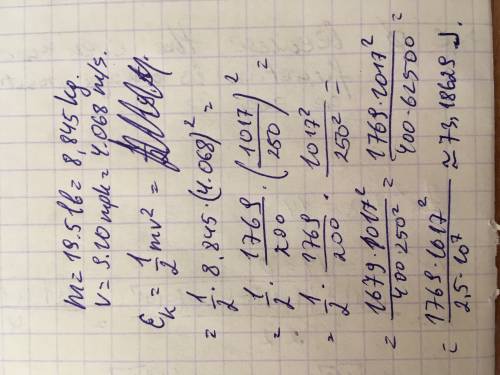 m = 19.5 lb = 8,845 kg.
v = 9.10 mph = 4.068 m/s.
Ɛk = 1/2 mv² =
= 1/2 · 8,845 · (4.068)² =
= 1/2 · 1769/200 · (1017/250)²
= 1/2 · 1769/200 · 1017²/250² =
= 1679·1017²/400·250² = 1769·1017²/400·62500²
= 1769·1017²/2,5·10⁷ ≈ 73,18629 J.